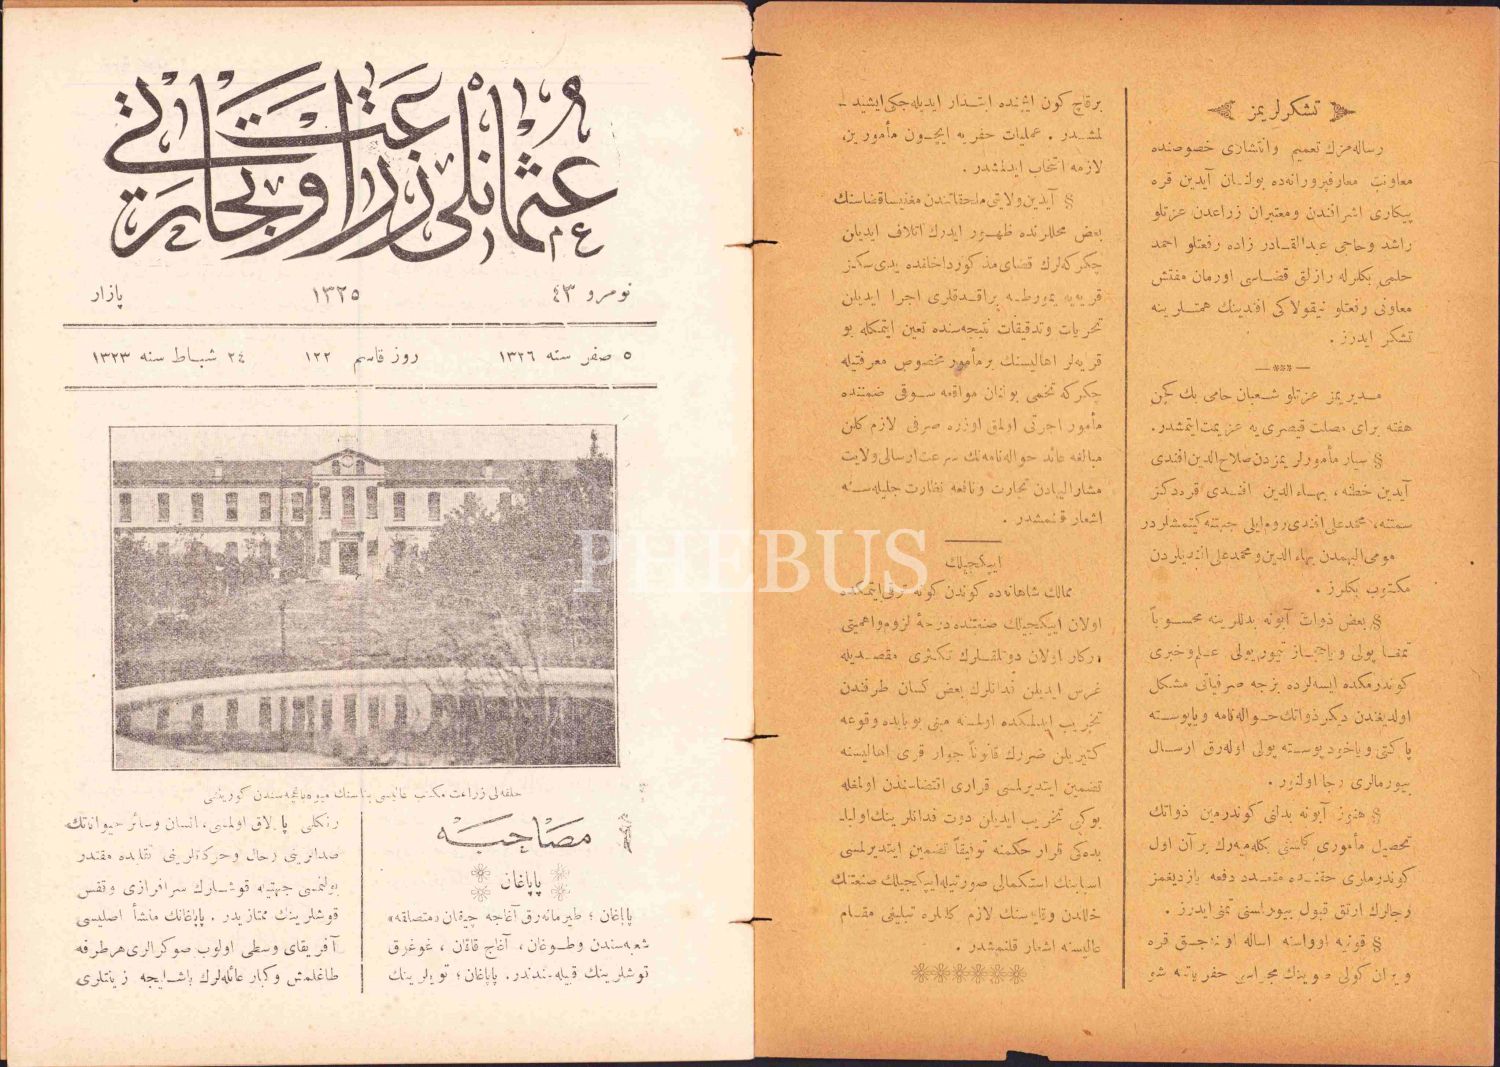 عثمانلى زراعت و تجارتى
نومرو ٤٣
١٣٢٥
پازار
٥ صفر سنه ١٣٢٦
روز قاسم ١٢٢
٢٤ شباط سنه ١٣٢٣
حلقه‌لى زراعت مكتب عاليسى بناسنك ميوه باغچه‌سندن كورينشى
مصاحبه
پاپاغان
پاپاغان ؛ طيرمانه‌رق آغاجه چيقان «متصلقه»
شعبه‌سندن و طوغان ، آغاج قاقان ، غوغرق
قوشلرينك قبيله‌سندندر. پاپاغان ؛ توىلرينك
رنكلى پارلاق اولمسى ، انسان وسائر حيواناتك
صدالرينى رحال وحركتلرينى تقليده مقتدر
بولنمسى جهتيله قوشلرك سرافرازى وقفس
قوشلرينك ممتازيدر . پاپاغانك منشأ اصليسى
آفريقاى وسطى اولوب صوكرالرى هر طرفه
طاغلمش وكبار عائله‌لرك باشليجه زينتلرى
تشكرلريمز
رساله‌مزك تعميم وانتشارى خصوصنده
معاونت معارفپرورانه‌ده بولنان آيدين قره
پيكارى اشرافندن ومعتبران زراعدن عزتلو
راشد وحاجى عبدالقادر زاده رفعتلو احمد
حلمى بكلرله رازلق قضاسى اورمان مفتش
معاونى رفعتلو نيقولاكى افندينك همتلرينه
تشكر ايدرز .
مديريمز عزتلو شعبان حامى بك كچن
هفته براى مصلحت قيصرى يه عزيمت ايتمشدر.
§ سيار مأمورلريمزدن صلاح الدين افندى
آيدين خطنه ، بهاء الدين افندى قره‌دكز
سمتنه، محمد على افندى روم ايلى جهتنه كيتمشلردر
مومى اليهمدن بهاء الدين و محمد على افنديلردن
مكتوب بكلرز .
§ بعض ذوات آبونه بدللرينه محسوباً
تمغا پولى و ياحجاز تيمور يولى علم وخبرى
كوندرمكده ايسه‌لرده بزجه صرفياتى مشكل
اولديغندن ديكر ذواتك حواله‌نامه وياپوسته
پاكتى وياخود پوسته پولى اوله‌رق ارسال
بيورمالرى رجا اولنور.
§ هنوز آبونه بدلنى كوندرمين ذواتك
تحصيل مأمورى كلمسنى بكله‌ميه‌رك بر آن اول
كوندرملرى حقنده متعدد دفعه يازديغمز
رجالرك ارتق قبول بيورلمسنى تمنى ايدرز .
§ قونيه اوواسنه اساله اولنه‌جق قره
ويران كولى صوينك مجراسى حفرياتنه شو
برقاچ كون ايچنده ابتدار ايديله‌جكى ايشيدـ
لمشدر . عمليات حفريه ايچون مأمورين،
لازمه انتخاب ايدلمشدر .
§ آيدين ولايتى ملحقاتندن مغنيسا قضاسنك
بعض محللرنده ظهور ايدرك اتلاف ايديلن
چكركه‌لرك قضاى مذكور داخلنده يدى سكز
قريه‌يه يمورطه براقدقلرى اجرا ايديلن
تحريات وتدقيقات نتيجه‌سنده تعين ايتمكله بو
قريه‌لر اهاليسنك برمأمور مخصوص معرفتيله
چكركه تخمى بولنان مواقعه سوقى ضمننده
مأمور اجرتى اولمق اوزره صرفى لازم كلن
مبالغه عائد حواله‌نامه‌نك سرعت ارسالى ولايت
مشاراليهادن تجارت ونافعه نظارت جليله‌سنه
اشعار قلنمشدر .
ايپكجيلك
ممالك شاهانه‌ده كوندن كونه ترقى ايتمكده
اولان ايپكجيلك صنعتنده درجۀ لزوم واهميتى
دركار اولان دوتلقلرك تكثرى مقصديله
غرس ايديلن فدانلرك بعض كسان طرفندن
تخريب ايدلمكده اولمسنه مبنى بوبابده وقوعه
كتيريلن ضررك قانوناً جوار قرى اهاليسنه
تضمين ايتديرلمسى قرارى اقتضاسندن اولمغله
بوكبى تخريب ايديلن دوت فدانلرينك اولبا‌ـ
بده‌كى قرار حكمنه توفيقاً تضمين ايتديرلمسى
اسبابنك استكمالى صورتيله ايپكجيلك صنعتنك
خللدن وقايه‌سنك لازم كلنلره تبليغى مقام
عاليسنه اشعار قلنمشدر .
PHEBUS